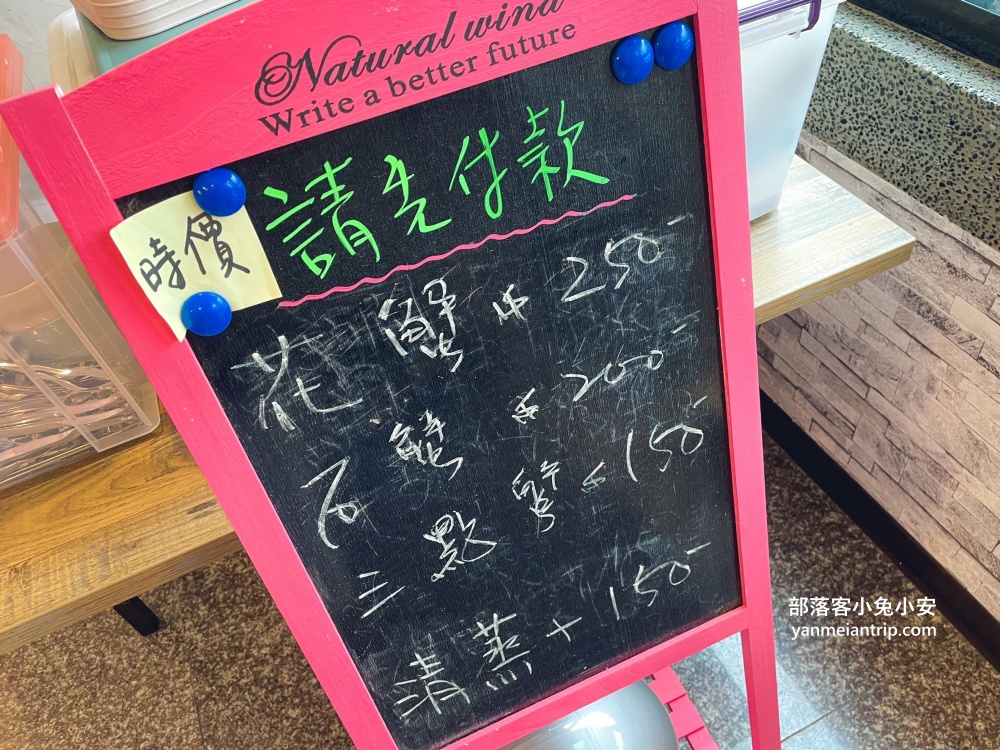 Natural wind
Write a better future
請先付款
時價
花蟹 250-
石蟹 200-
三點蟹 150-
清蒸+150-
部落客小兔小安
yanmeiantrip.com